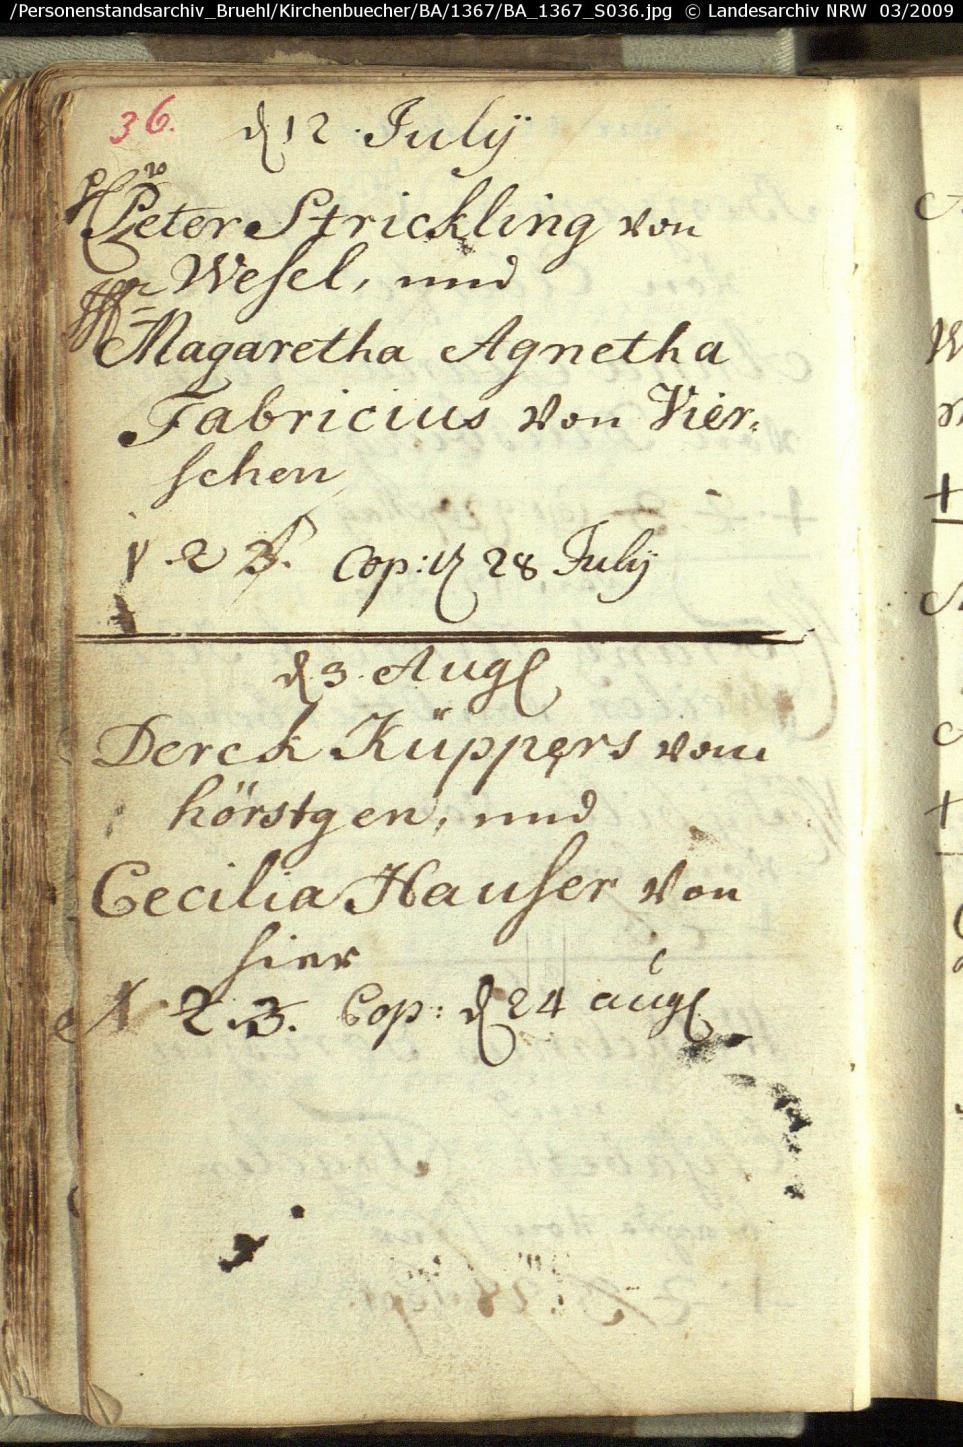 /Personenstandsarchiv_Bruehl/Kirchenbuecher/BA/1367/BA_1367_S036.jpg © Landesarchiv NRW 03/2009
36.
d 12 July
Peter Strickling von
Wesel, und
Magaretha Agnetha
Fabricius von Vier-
schen
1 2 3. Cop: d 28 July
d 3. Aug
Derck Küppers vom
hörstgen, und
Cecilia Hauser von
hier
1 2 3. Cop: d 24 aug